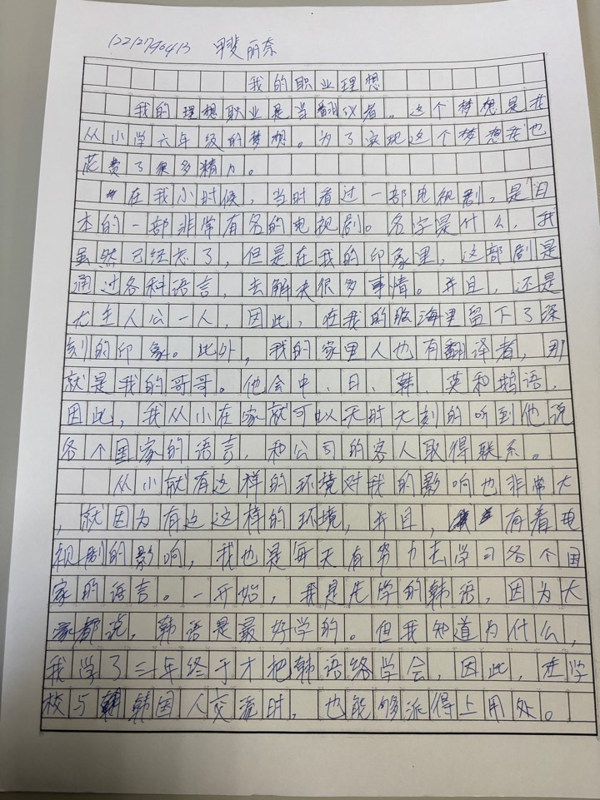 12212740413 甲斐丽奈
我的职业理想
我的理想职业是当翻译者。这个梦想是在
从小学六年级的梦想。为了实现这个梦想我也
花费了很多精力。
在我小时候,当时看过一部电视剧,是日
本的一部非常有名的电视剧。名字是什么,我
虽然已经忘了,但是在我的印象里,这部剧是
通过各种语言,去解决很多事情。并且,还是
尤主人公一人,因此,在我的脑海里留下了深
刻的印象。此外,我的家里人也有翻译者,那
就是我的哥哥。他会中、日、韩、英和鹅语,
因此,我从小在家就可以无时无刻的听到他说
各个国家的语言,和公司的客人取得联系。
从小就有这样的环境对我的影响也非常大
,就因为有这这样的环境,并且,有着电
视剧的影响,我也是每天有努力去学习各个国
家的语言。一开始,我是先学的韩语,因为大
家都说,韩语是最好学的。但我知道为什么,
我学了三年终于才把韩语给学会,因此,在学
校与韩国人交流时,也能够派得上用处。